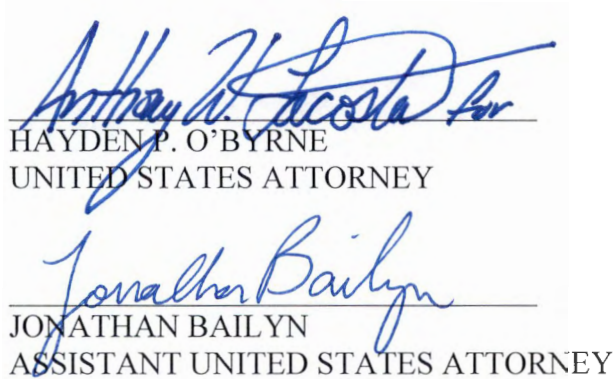 Anthony W. Lacosta for
HAYDEN P. O'BYRNE
UNITED STATES ATTORNEY
Jonathan Bailyn
JONATHAN BAILYN
ASSISTANT UNITED STATES ATTORNEY